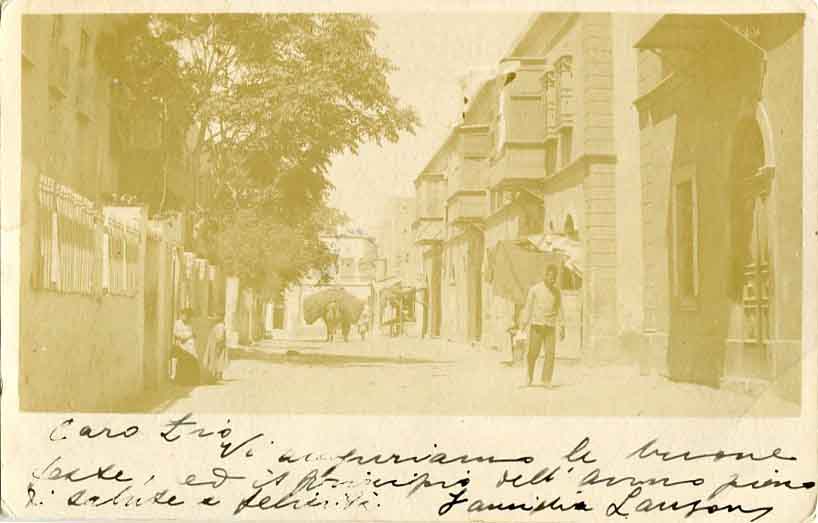 Caro Zio,
Vi auguriamo le buone
feste, ed il principio dell'anno pieno
di salute e felicità. Famiglia